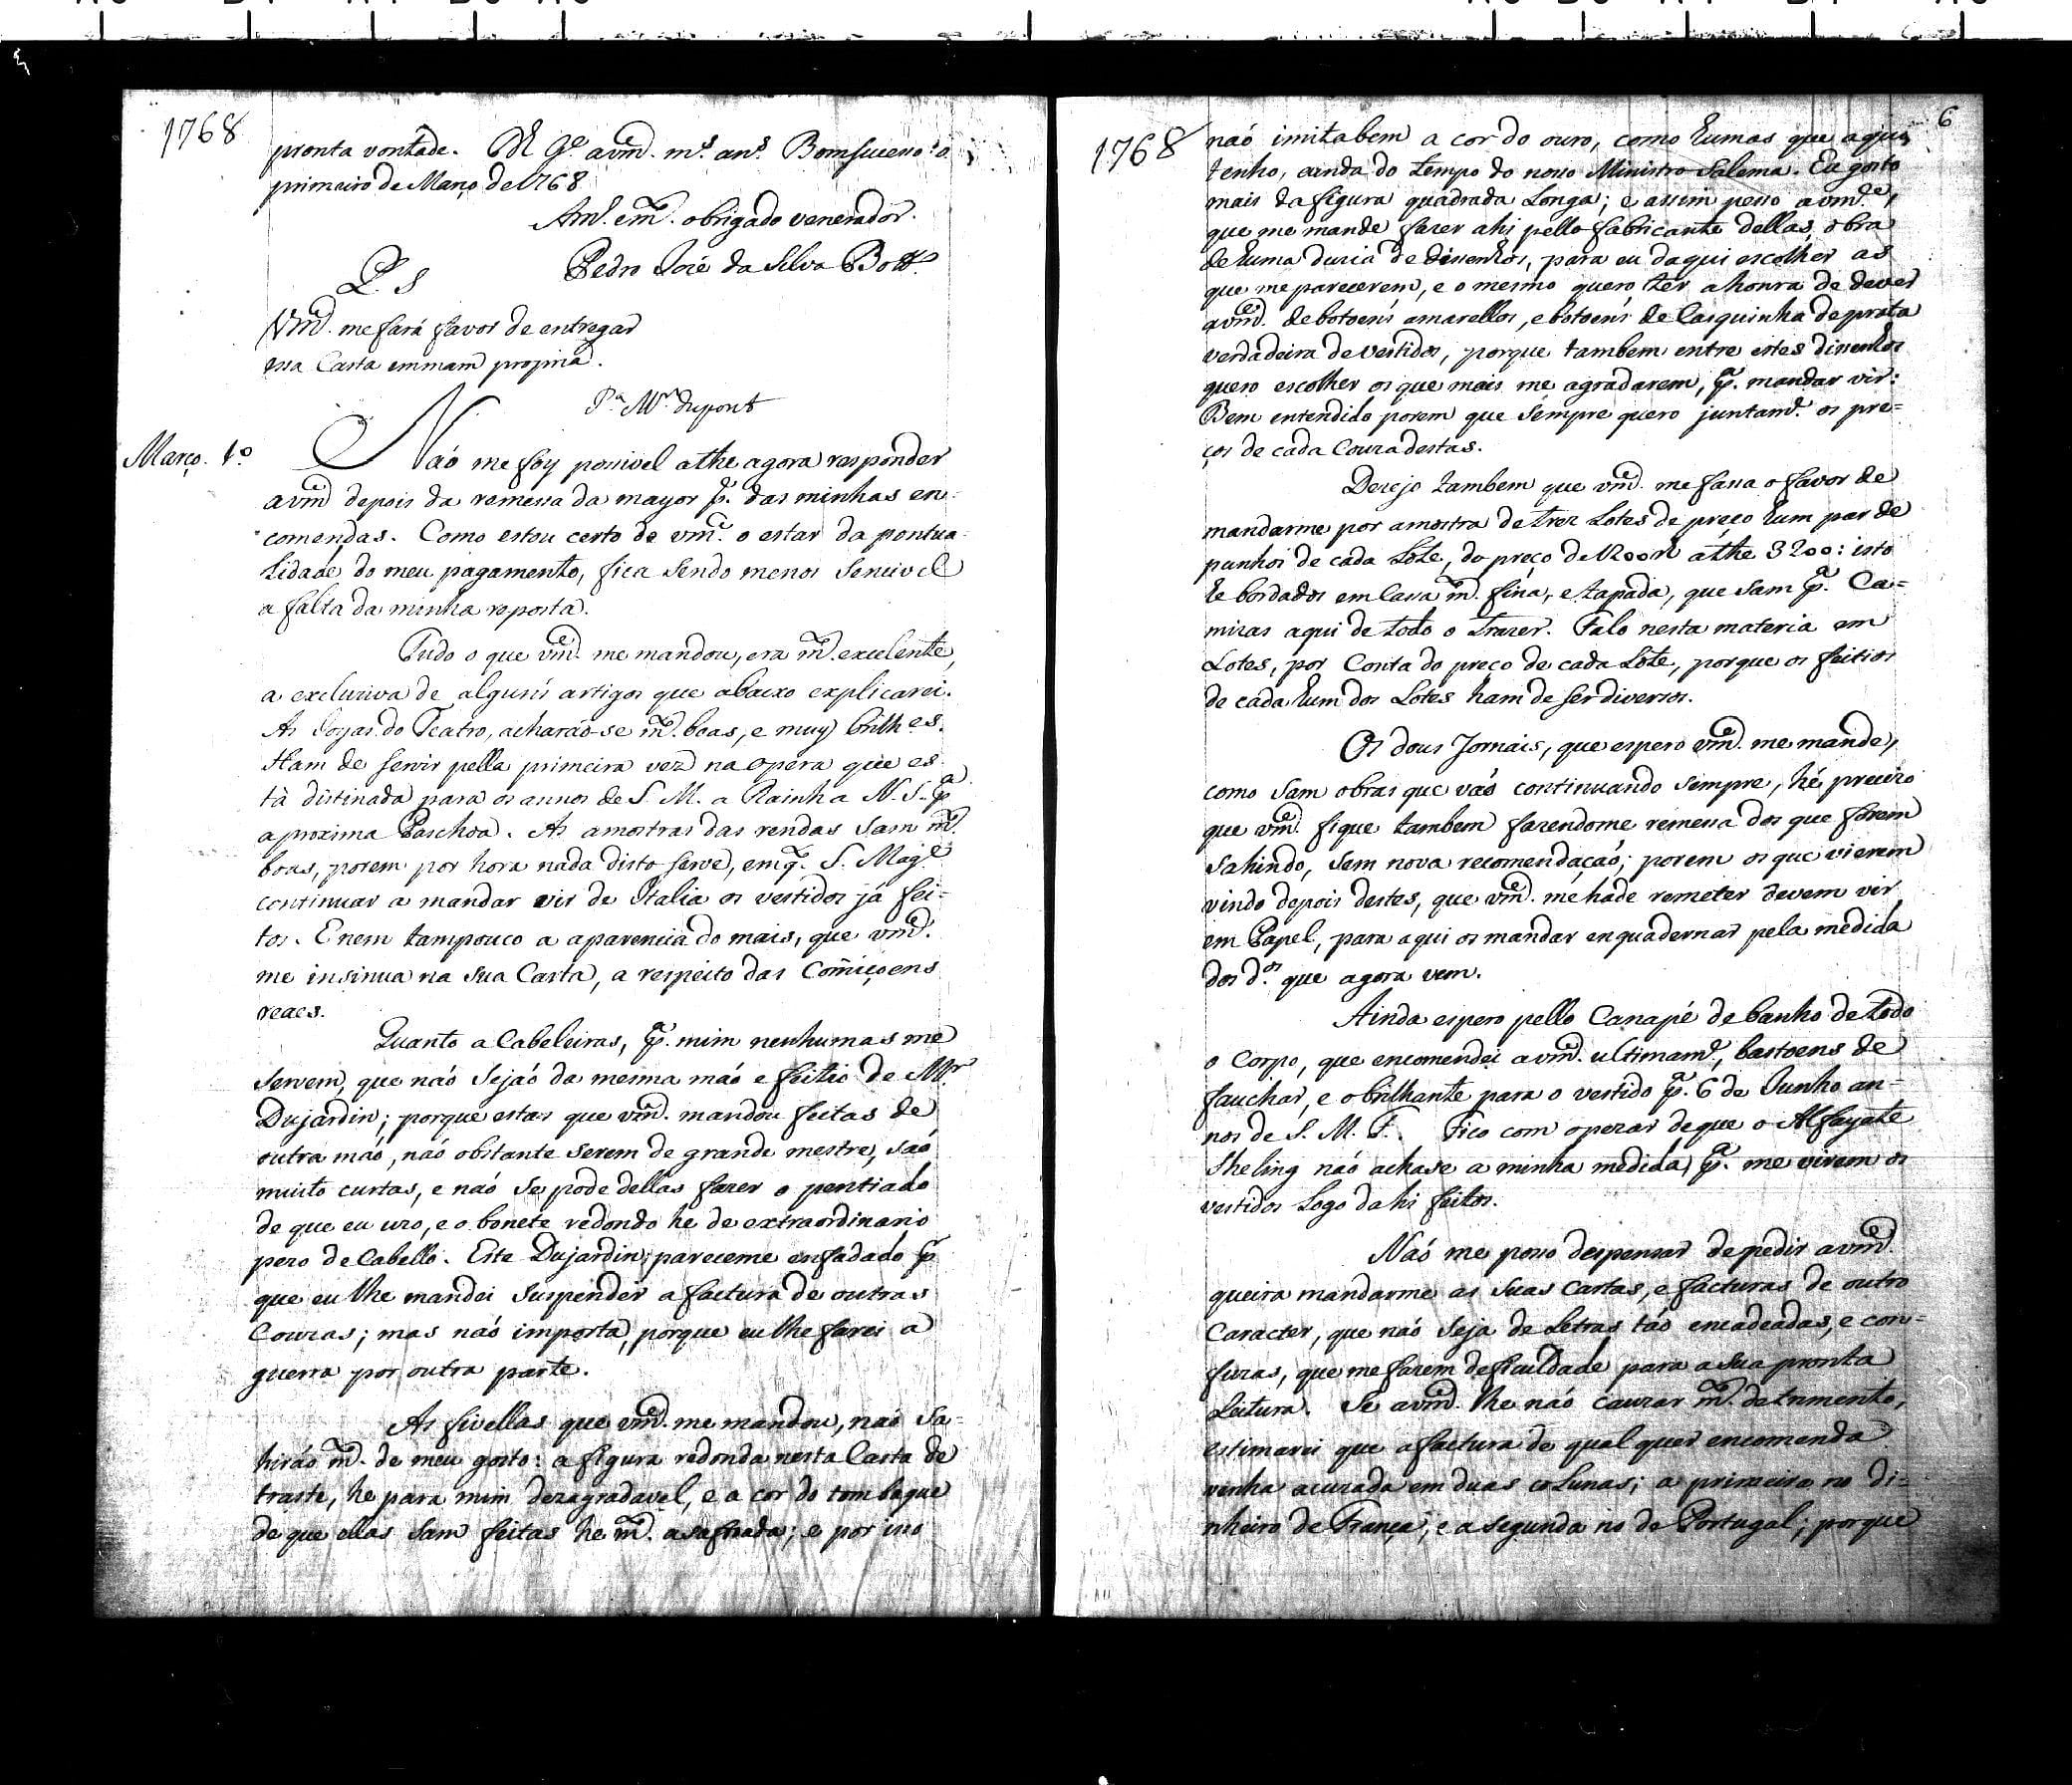 1768
pronta vontade. D.s G.e avm.ce m.s an.s Bomsucesso o
primeiro de Março de 1768
Am.o e m.to obrigado venerador.
Pedro José da Silva Bott.o
P. S
Vm.ce me fará favor de entregar
essa Carta em mam propria.
P.a M.r dupont
Março. 1.o
Naó me foy possivel athe agora responder
avm.ce depois da remessa da mayor p.e das minhas en-
comendas. Como estou certo de vm.ce o estar da pontua-
lidade do meu pagamento, fica sendo menos sensivel
a falta da minha reposta.
Tudo o que vm.ce me mandou, era m.to excelente,
a excluziva de alguns artigos que abaixo explicarei.
As Joyas do Teatro, acharáo-se m.to boas, e muy brilh.es.
Ham de servir pella primeira vez na opera que es
tà distinada para os annos de S. M. a Rainha N. S. p.a
a proxima Paschoa. As amostras das rendas sam m.to
boas, porem por hora nada disto serve, emq.to S. Mag.e
continuar a mandar vir de Italia os vestidos já fei-
tos. E nem tampouco a aparencia do mais, que vm.ce
me insinua na sua Carta, a respeito das Com̃içoens
reaes.
Quanto a Cabeleiras, p.a mim nenhumas me
servem, que naó sejaó da mesma maó e feitio de M.r
Dujardin; porque estas que vm.ce mandou feitas de
outra maó, naó obstante serem de grande mestre, saó
muito curtas, e naó se pode dellas fazer o pentiado
de que eu uzo, e o bonete redondo he de extraordinario
pezo de Cabello. Este Dujardin pareceme enfadado p.r
que eu lhe mandei suspender a factura de outras
Couzas; mas naó importa, porque eu lhe farei a
guerra por outra parte.
As fivellas que vm.ce me mandou, naó sa-
hiráo m.to de meu gosto: a figura redonda nesta Casta de
traste, he para mim dezagradavel, e a cor do tombaque
de que ellas sam feitas he m.to asafroada; e por isso
6
1768
naó imita bem a cor do ouro, como humas que aqui
tenho, ainda do tempo do nosso Ministro Salema. Eu gosto
mais da figura quadrada Longa; e assim pesso avm.ce,
que me mande fazer ahi pello fabricante dellas, obra
de huma duzia de dizenhos, para eu daqui escolher as
que me parecerem, e o mesmo quero ter a honra de dever
avm.ce de botoéns amarellos, e botoéns de Casquinha de prata
verdadeira de vestidos, porque tambem entre estes dizenhos
quero escolher os que mais me agradarem, p.a mandar vir:
Bem entendido porem que sempre quero juntam.e os pre-
ços de cada Couza destas.
Dezejo tambem que vm.ce me fassa o favor de
mandarme por amostra de trez Lotes de preço hum par de
punhos de cada Lote, do preço de 1200 rs athe 3200: isto
he bordados em Cassa m.to fina, e tapada, que sam p.a Ca-
mizas aqui de todo o trazer. Falo nesta materia em
Lotes, por Conta do preço de cada Lote, porque os feitios
de cada hum dos Lotes ham de ser diversos.
Os dous Jornais, que espero vm.ce me mande,
como sam obras que váo continuando sempre, hé precizo
que vm.ce fique tambem fazendome remessa dos que forem
sahindo, sem nova recomendaçaó; porem os que vierem
vindo depois destes, que vm.ce me hade remeter devem vir
em Papel, para aqui os mandar enquadernar pela medida
dos d.os que agora vem.
Ainda espero pello Canapé de banho de todo
o Corpo, que encomendei avm.ce ultimam.e, bastoens de
fauchar, e o brilhante para o vestido p.a 6 de Junho an-
nos de S. M. F. Fico com o pezar de que o Alfayate
Sheling naó achase a minha medida, p.a me virem os
vestidos Logo dahi feitos.
Naó me posso despensar de pedir avm.ce
queira mandarme as suas Cartas, e facturas de outro
Caracter, que naó seja de Letras táo encadeadas, e con-
fuzas, que me fazem deficuldade para a sua pronta
Leitura. Se avm.ce lhe naó cauzar m.to detrimento,
estimarei que a factura de qual quer encomenda
venha acuzada em duas colunas; a primeira no di-
nheiro de França, e a segunda no de Portugal; porque